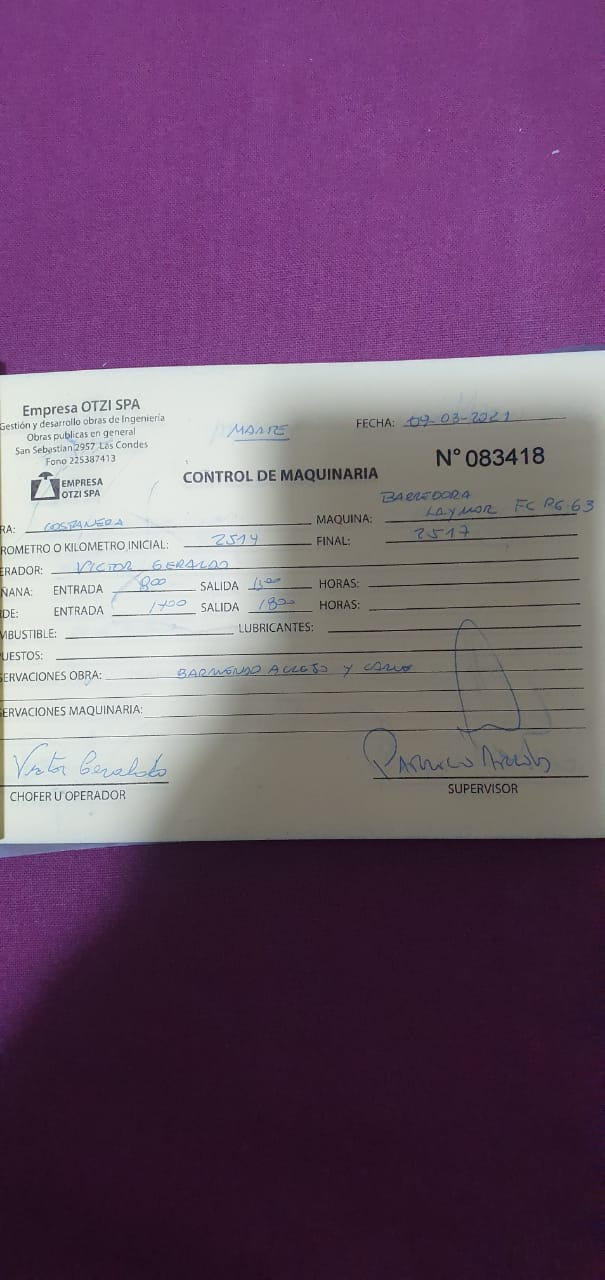 Empresa OTZI SPA
Gestión y desarrollo obras de Ingeniería
Obras publicas en general
San Sebastian 2957 Las Condes
Fono 225387413
EMPRESA
OTZI SPA
MARTE
FECHA: 09-03-2021
CONTROL DE MAQUINARIA
N° 083418
RA: COSTANERA
MAQUINA: BARREDORA
LAYMOR FCPG-63
ROMETRO O KILOMETRO INICIAL: 2514 FINAL: 2517
ERADOR: VICTOR GERALDO
ÑANA: ENTRADA 800 SALIDA 1300 HORAS:
DE: ENTRADA 1400 SALIDA 1800 HORAS:
MBUSTIBLE: LUBRICANTES:
PUESTOS:
SERVACIONES OBRA: BARRIENDO ACCESO Y
SERVACIONES MAQUINARIA:
Victor Geraldo
CHOFER U OPERADOR
SUPERVISOR